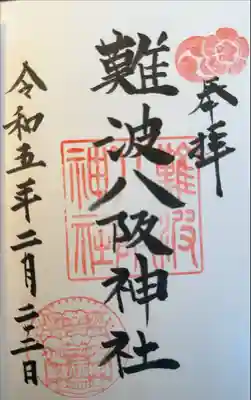 奉拝
難波八阪神社
令和五年二月二十二日
難波
神社